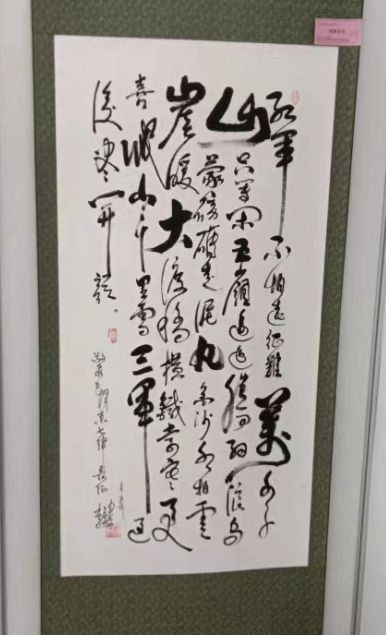 紅軍不怕遠征難萬水千
山只等閑五嶺逶迤騰細浪烏
蒙磅礴走泥丸金沙水拍雲
崖暖大渡橋横鐵索寒更
喜岷山千里雪三軍過
後盡開顔。
毛澤東七律長征